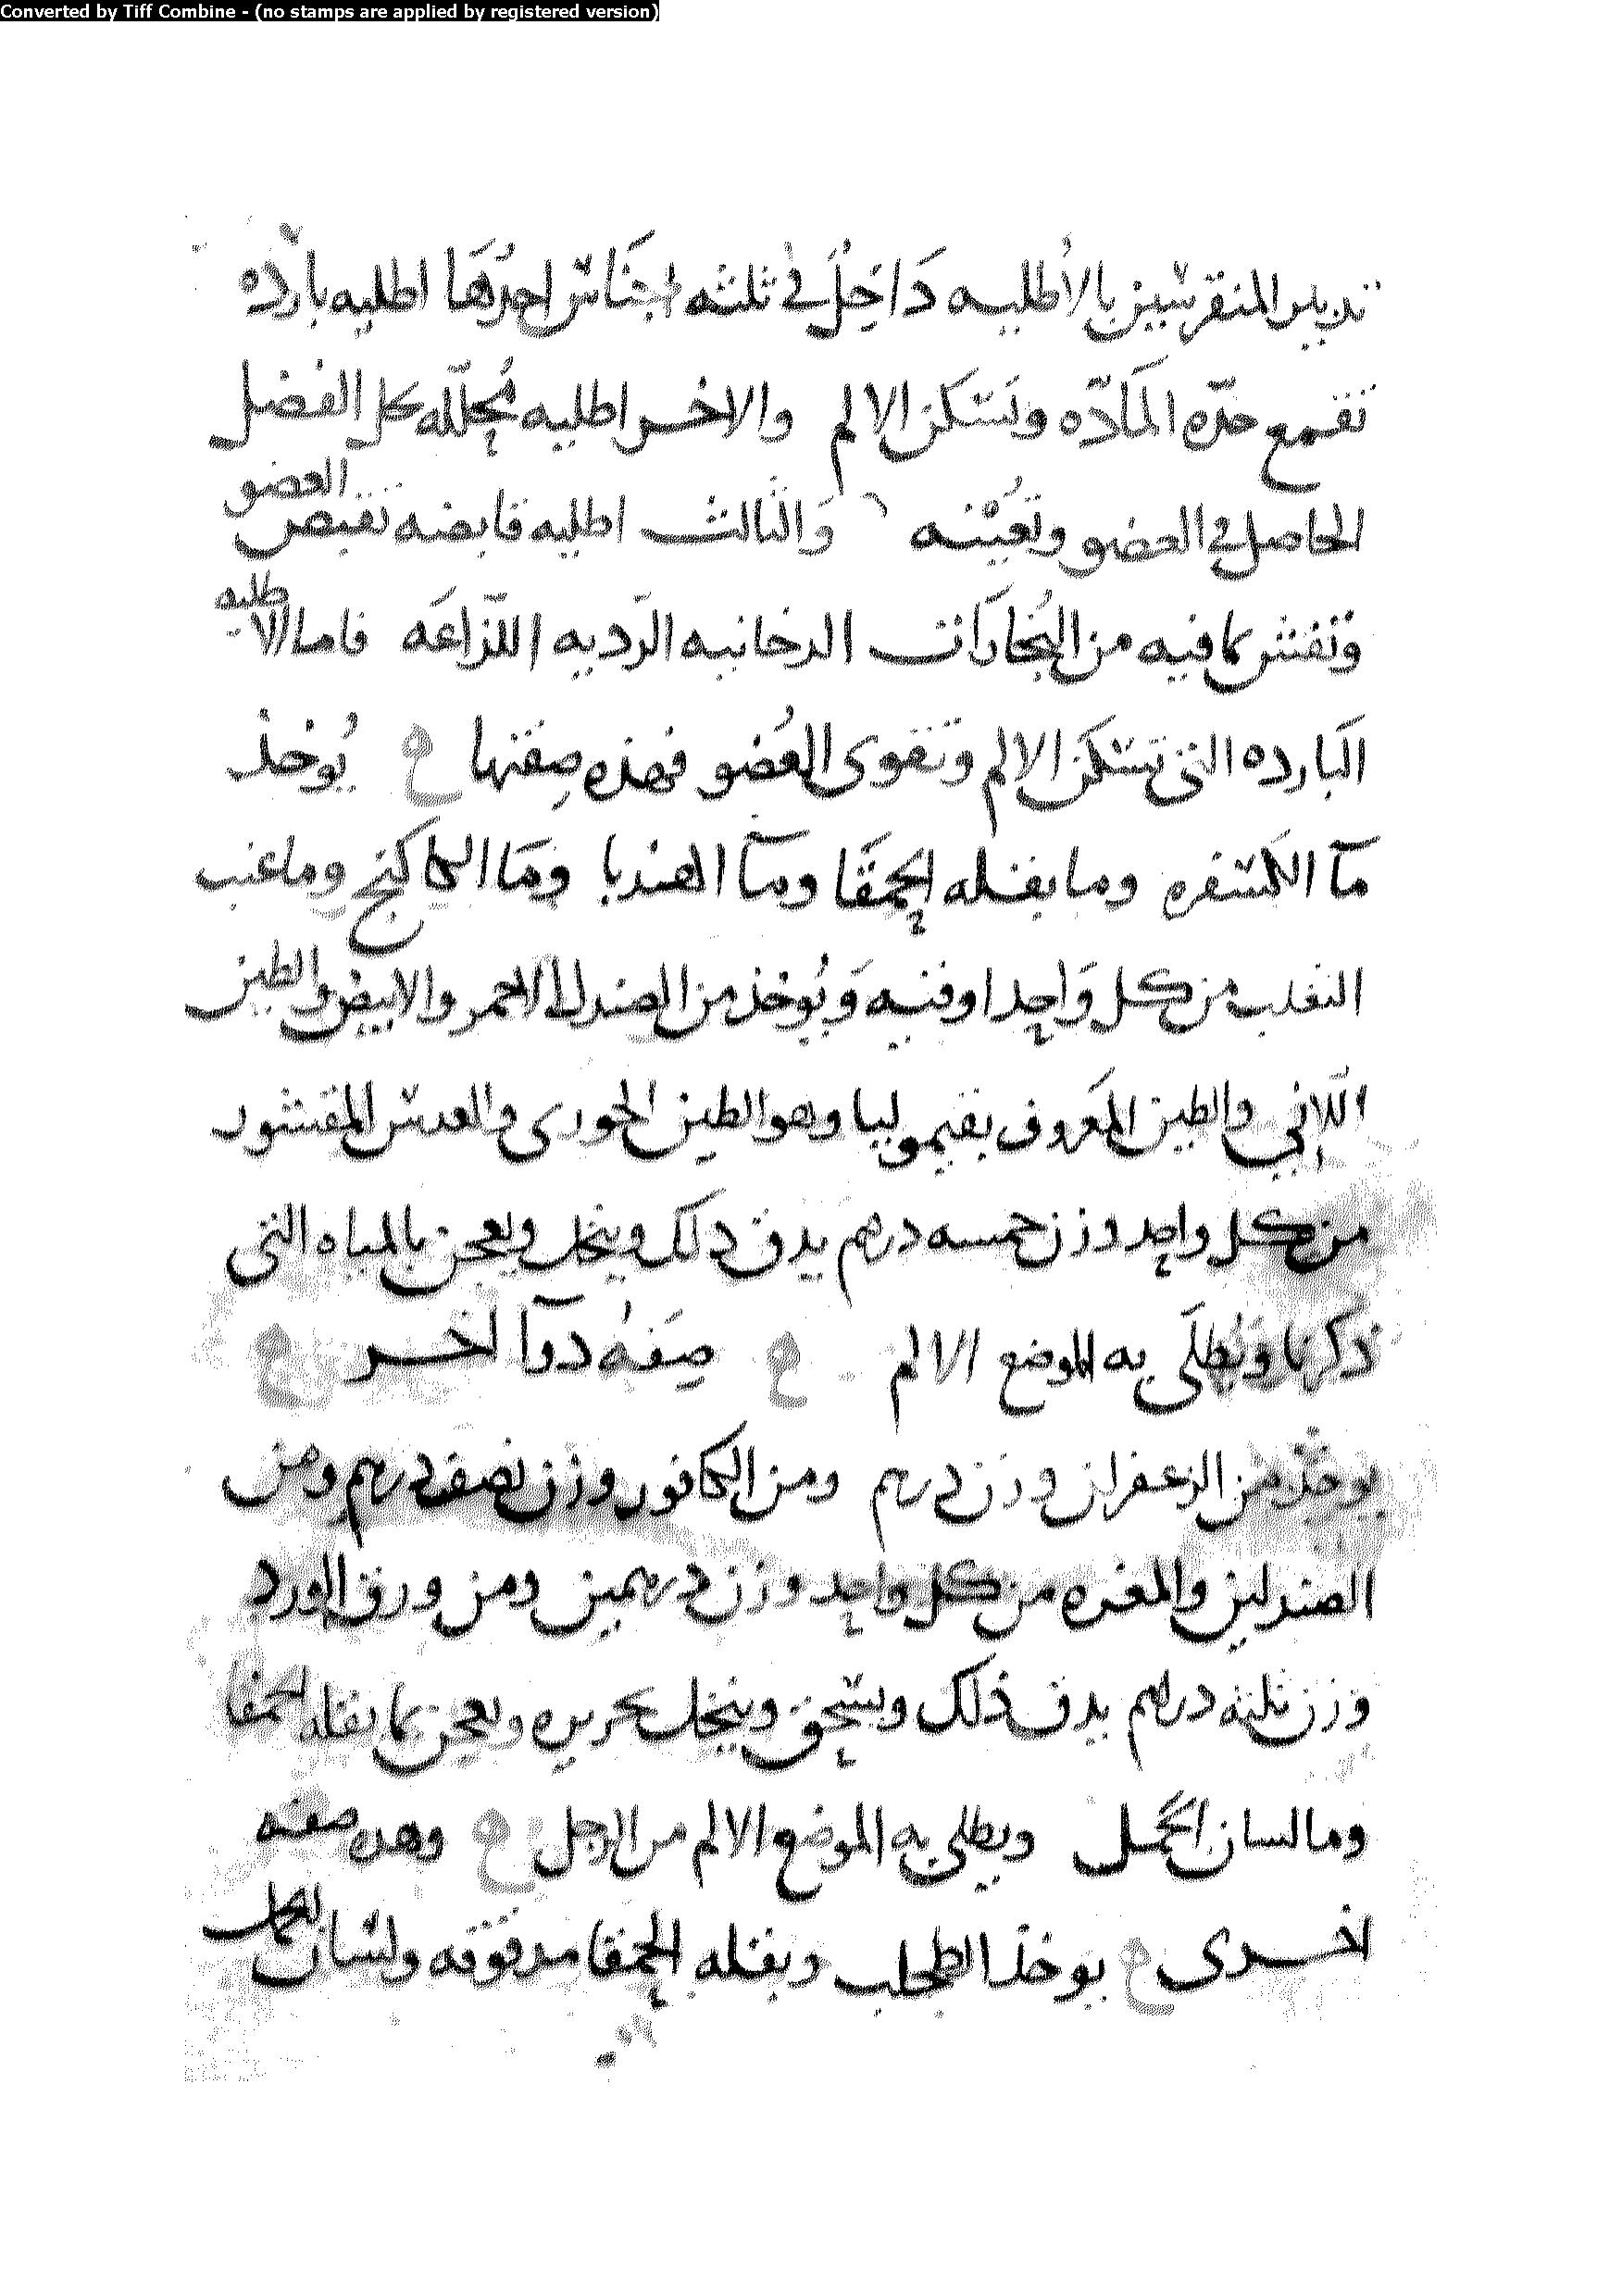 Converted by Tiff Combine - (no stamps are applied by registered version)
تدبير المنقرسين بالاطليه دَاخِلُ في ثلثه اجنَاسٍ احدُهَا اطليه بارده
تقمع حدّه المَادّه وتسَكن الالم والاخر اطليه مُحلّله تحلل الفضل
الحاصل في العضو وتعينه وَالثالث اطليه قابضه تقبض العضو
وتفش ما فيه من البُخارَات الدخانيه الرّديه اللّزاعَه فاما الاطليه
البَارده التي تسَكن الالم وتقوى العُضو فهذه صِفتها يُوخذ
مآ الكسفره وما بقله الحمقَا ومآ الهندبا ومَا الكاكنج وما عنب
الثعلب من كل وَاحِد اوقيه وَيُوخذ من الصندل الاحمر والابيض والطين
اللاني والطين المعَروف بقيموليا وهو الطين الحورى والعدس المقشور
من كل واحِد وزن خمسه درهم يدق ذلك وينخل ويعجن بالمياه التى
ذكرنا ويُطلَى به الموضع الالم صِفهُ دوآ اخر
يوخذ من الزعفران وزن درهم ومن الكافور وزن نصف درهم ومن
الصندلين والمغره من كل واحِد وزن درهمين ومن ورق الورد
وزن ثلثه درهم يدق ذلك ويسحق وينخل بحريره ويعجن بما بقله الحمقا
وما لسان الحَمل ويطلى به الموضع الالم من الرجل وهذه صفه
اخرى يوخذ الطحلب وبقله الحمقا مدقوقه ولسَان الحمل